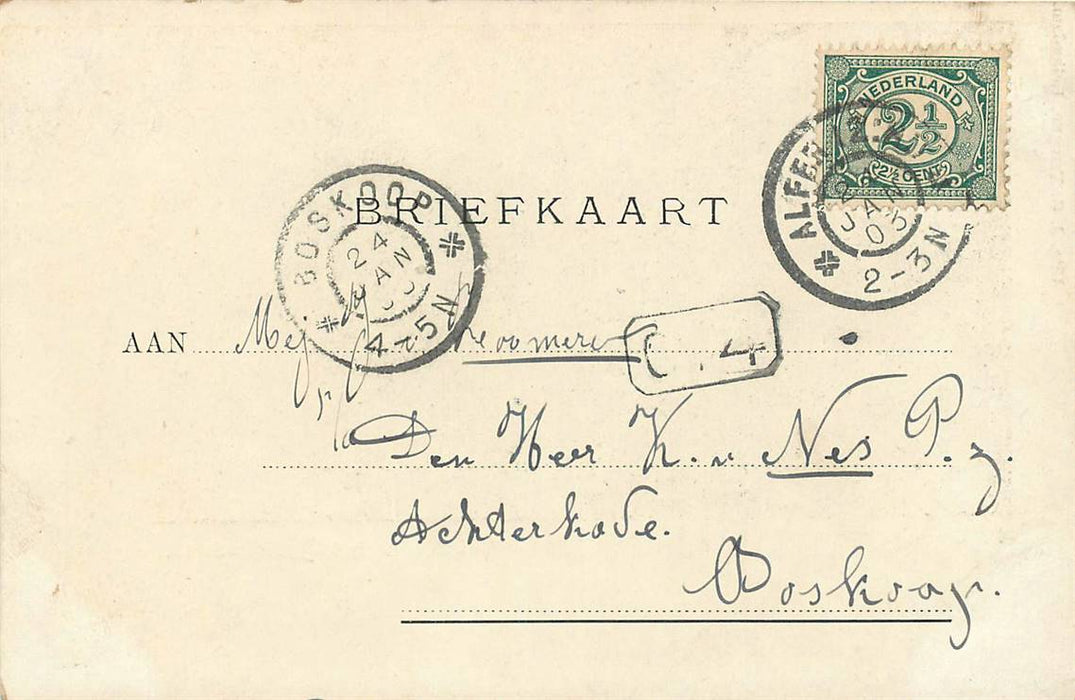 NEDERLAND
2½
2½ CENT
ALFEN
24
JAN
05
2-3N
BOSKOOP
24
JAN
4-5N
BRIEFKAART
AAN Mej.
4
Den Heer K. v Nes P.z.
Achterkade.
Boskoop.